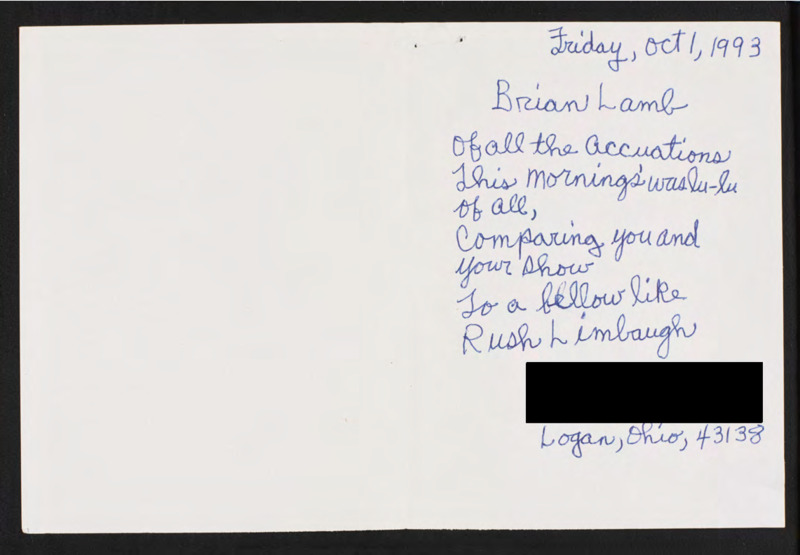 Friday, Oct 1, 1993
Brian Lamb
Of all the accuations
This mornings' was lu-lu
of all,
Comparing you and
your show
To a bellow like
Rush Limbaugh
Logan, Ohio, 43138